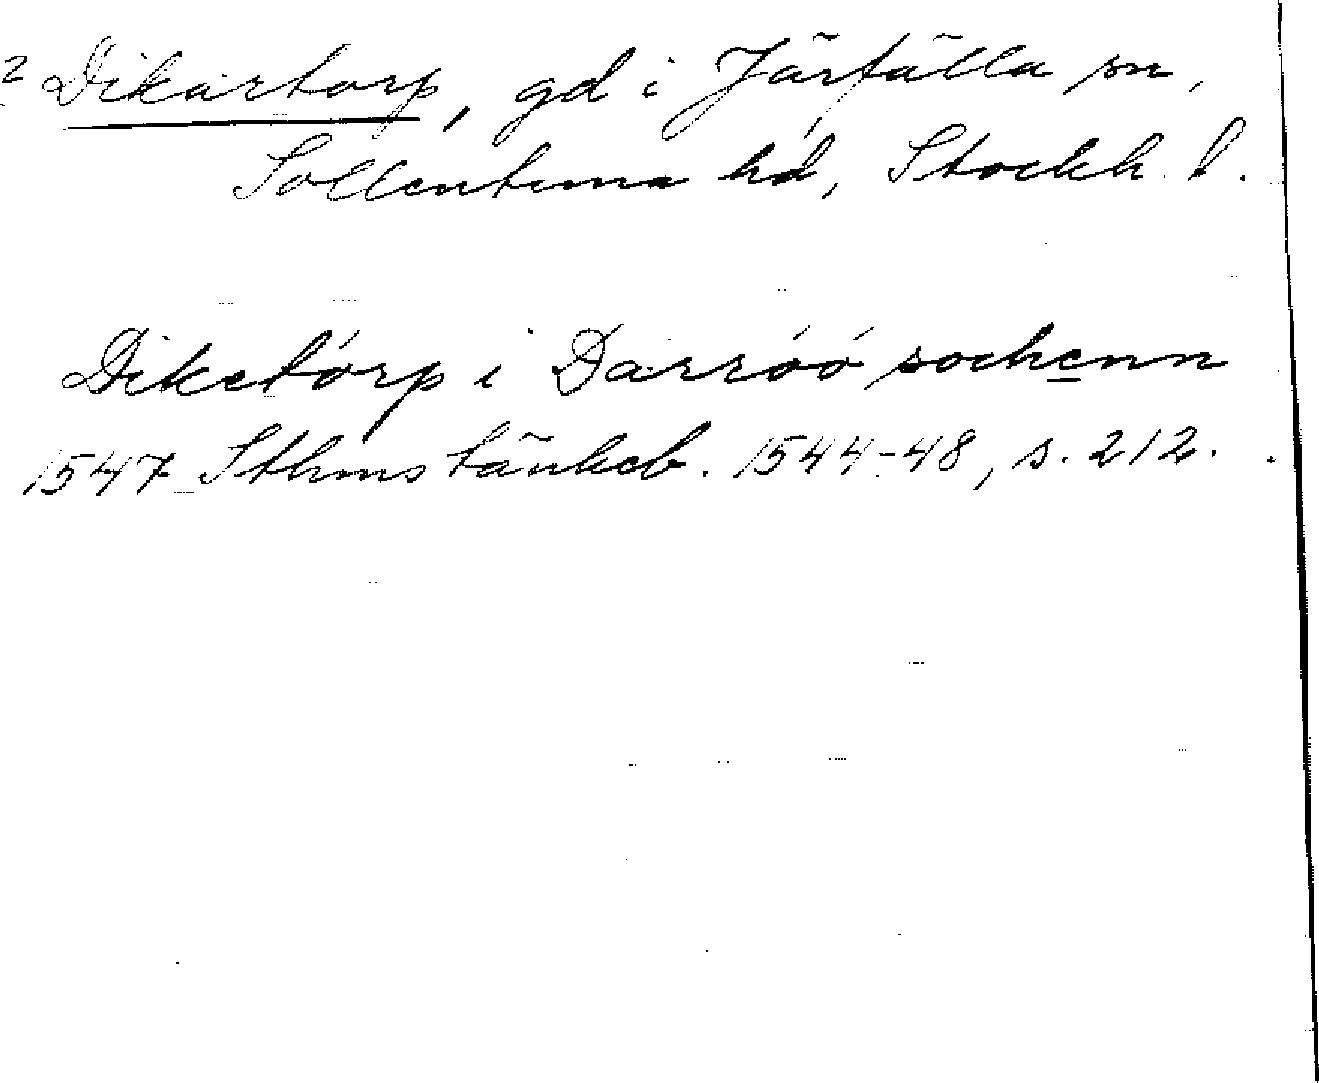 2 Dikartorp, gd i Järfälla sn,
Sollentuna hd, Stockh. l.
Diketórp i Darróó sochenn
1547 Sthms tänkeb. 1544-48, s. 212.